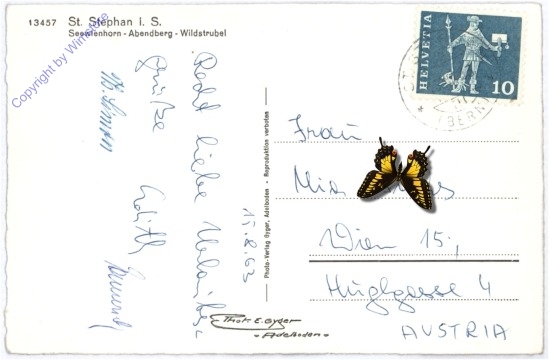 13457 St. Stephan I. S.
Seewlenhorn - Abendberg - Wildstrubel
Copyright by
Recht liebe
Grüsse
Edith
15.8.63
Photo-Verlag Gyger, Adelboden - Reproduktion verboten
Phot. E. Gyger
Adelboden
HELVETIA
10
(BERN)
Frau
Wien 15,
Hüglgasse 4
AUSTRIA